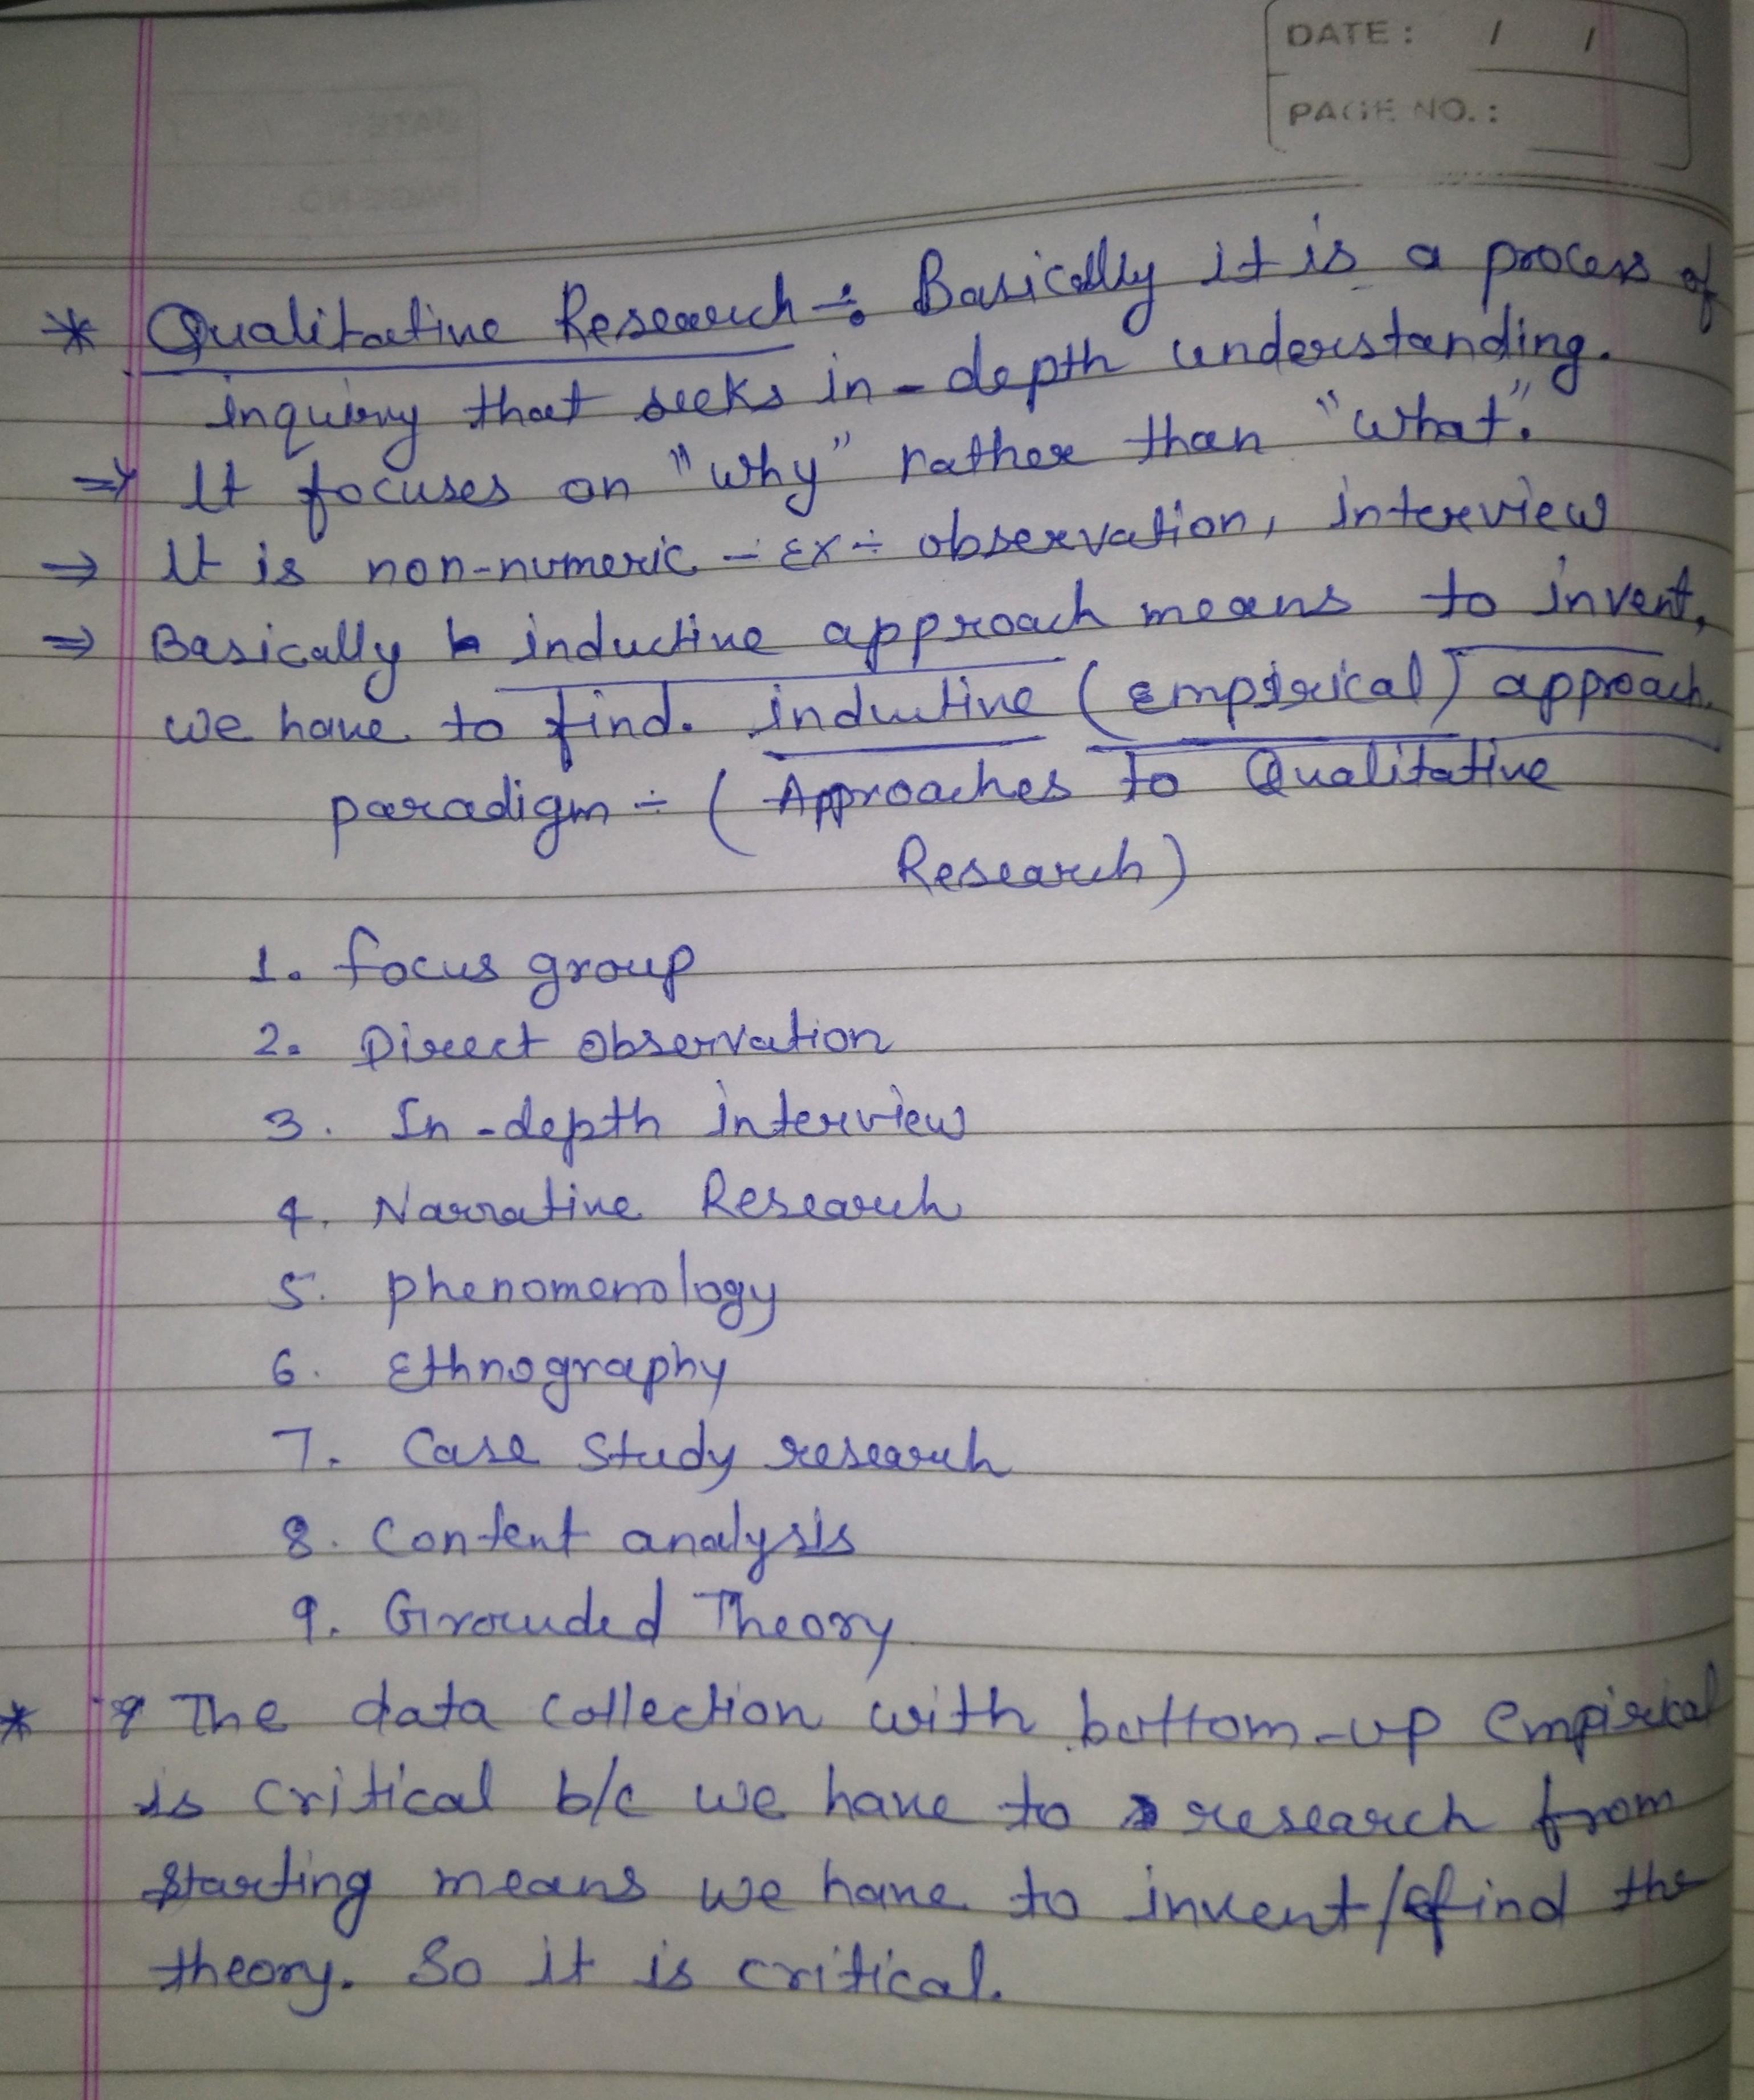 DATE: / /
PAGE NO.:
* Qualitative Research ÷ Basically it is a process of
inquiry that seeks in-depth understanding.
⇒ It focuses on "why" rather than "what".
⇒ It is non-numeric - Ex ÷ observation, interview
⇒ Basically inductive approach means to invent,
we have to find. inductive (Empirical) approach.
paradigm ÷ ( Approaches to Qualitative
Research)
1. focus group
2. Direct observation
3. In-depth interview
4. Narrative Research
5. phenomenology
6. Ethnography
7. Case Study research
8. Content analysis
9. Grouded Theory
* The data collection with bottom-up empirical
is critical b/c we have to research from
starting means we have to invent/find the
theory. So it is critical.